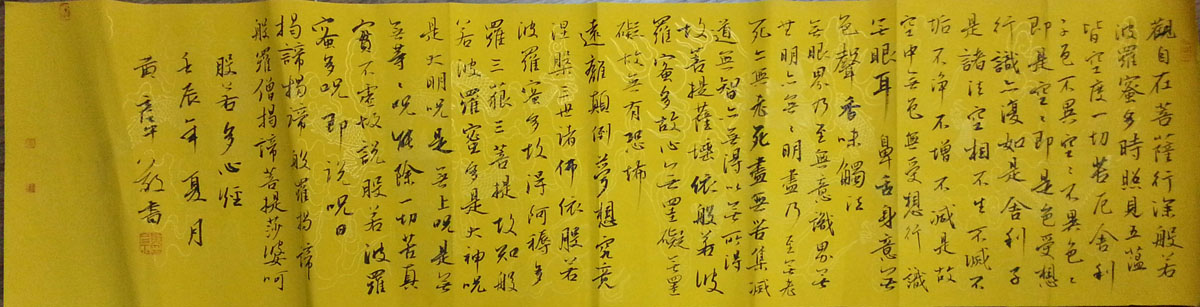 觀自在菩薩行深般若
波羅蜜多時照見五蘊
皆空度一切苦厄舍利
子色不異空々不異色々
即是空々即是色受想
行識亦復如是舍利子
是諸法空相不生不滅不
垢不淨不增不減是故
空中無色無受想行識
無眼耳鼻舌身意無
色聲香味觸法
無眼界乃至無意識界無
無明亦無々明盡乃至無老
死亦無老死盡無苦集滅
道無智亦無得以無所得
故菩提薩埵依般若波
羅蜜多故心無罣礙無罣
礙故無有恐怖
遠離顛倒夢想究竟
涅槃三世諸佛依般若
波羅蜜多故得阿耨多
羅三藐三菩提故知般
若波羅蜜多是大神呪
是大明呪是無上呪是無
無等々呪能除一切苦真
實不虛故說般若波羅
蜜多呪即說呪曰
揭諦揭諦般羅揭諦
般羅僧揭諦菩提莎婆呵
般若多心經
壬辰年夏月
黃 敬書